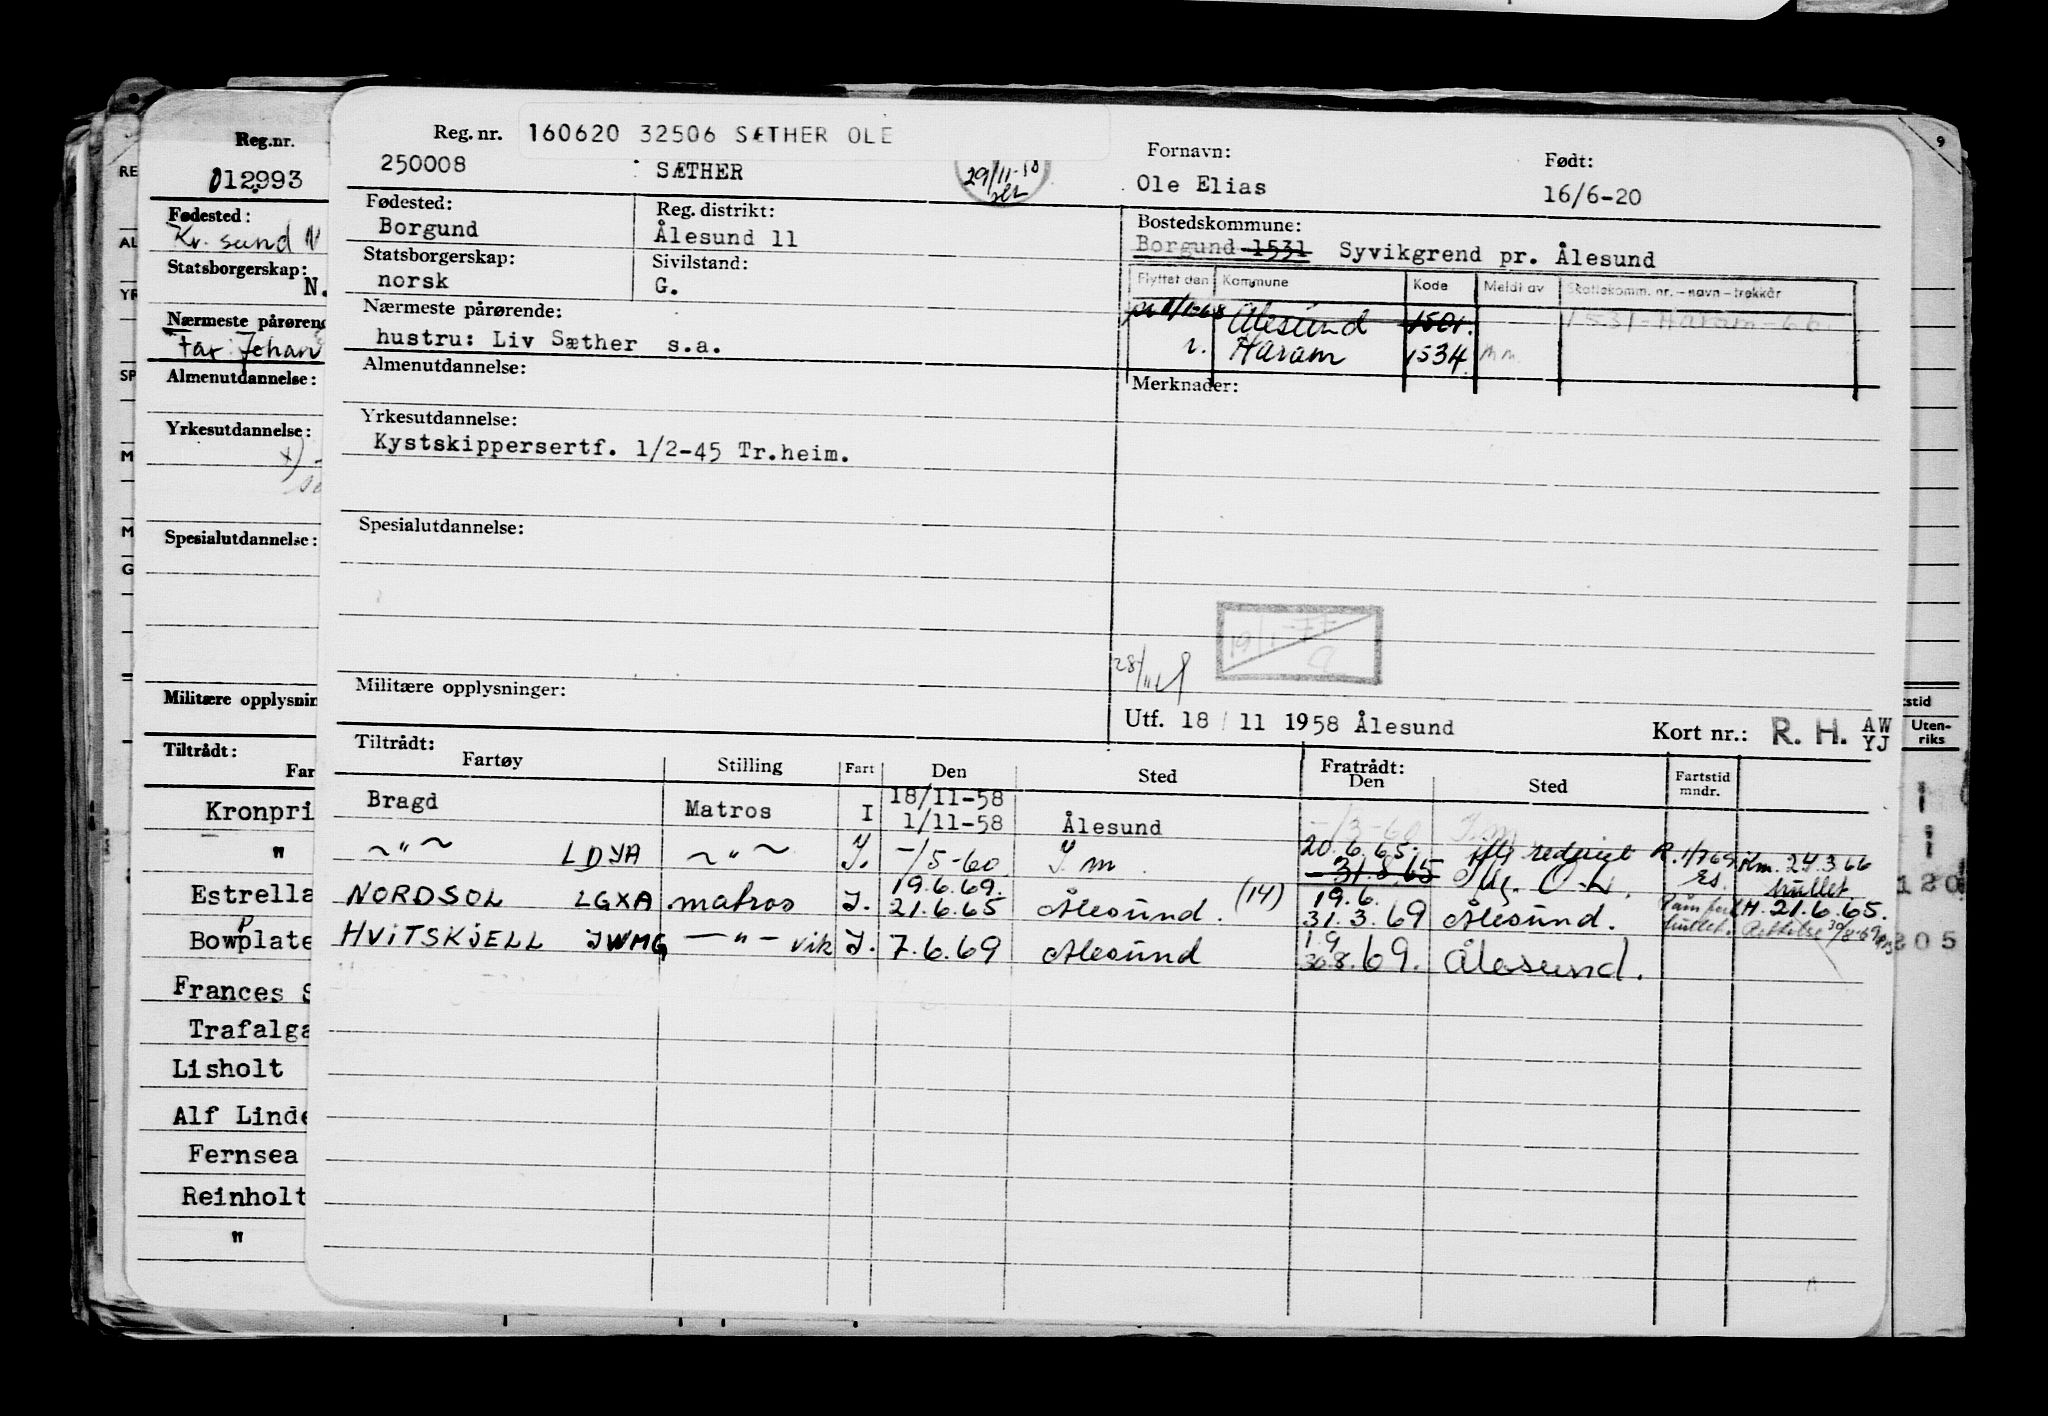 Reg. nr. 160620 32506 SÆTHER OLE
250008 SÆTHER
29/11-58
Fornavn:
Ole Elias
Født:
16/6-20
Fødested:
Borgund
Reg. distrikt:
Ålesund 11
Bostedskommune:
Borgund 1531 Syvikgrend pr. Ålesund
Statsborgerskap:
norsk
Sivilstand:
G.
Flyttet den Kommune Kode Meldt av Skattekomm. nr. – navn – trekkår
1/1-68 Ålesund 1501. 1531-Haram-66
Haram 1534
Nærmeste pårørende:
hustru: Liv Sæther s.a.
Almenutdannelse:
Merknader:
Yrkesutdannelse:
Kystskippersertf. 1/2-45 Tr.heim.
Spesialutdannelse:
19/1-77
28/11
Militære opplysninger:
Utf. 18 / 11 1958 Ålesund
Kort nr.: R. H. AW
YJ
Tiltrådt:
Fartøy Stilling Fart Den Sted
Fratrådt:
Den Sted Fartstid
mndr.
Bragd Matros I 18/11-58
1/11-58 Ålesund -/3-60 I m
— " — LDYA — " — I. -/5-60 I m 20.6.65.
31.8.65 Km. 24.3.66
hullet
NORDSOL LGXA matros I. 19.6.69.
21.6.65 Ålesund. (14) 19.6.
31.3.69 Ålesund. H. 21.6.65.
hullet. Rettelse 30/8-69
HVITSKJELL JWMG — " — vik I. 7.6.69 Ålesund 1.9
30.8.69. Ålesund.
Reg.nr.
012993
Fødested:
Kr. sund N
Statsborgerskap:
N.
Nærmeste pårørend
far Johan
Almenutdannelse:
Yrkesutdannelse:
x)
Spesialutdannelse:
Militære opplysnin
Tiltrådt:
Far
Kronpri
"
Estrella
Bowplate
Frances S
Trafalga
Lisholt
Alf Linde
Fernsea
Reinholt
"
RE
AL
YR
SP
M
M
G
9
tstid
Uten-
riks
120
805